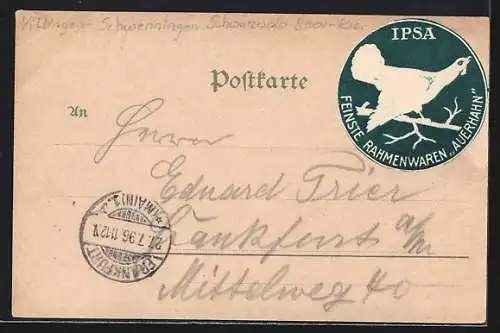 Villingen - Schwenningen Schwarzwald-Baar-Kr.
IPSA
FEINSTE RAHMENWAREN „AUERHAHN“
Postkarte
An
Herrn
Eduard Trier
Frankfurt a/M
Mittelweg 40
FRANKFURT (MAIN) 1.
27.7.96. 11-12 N.